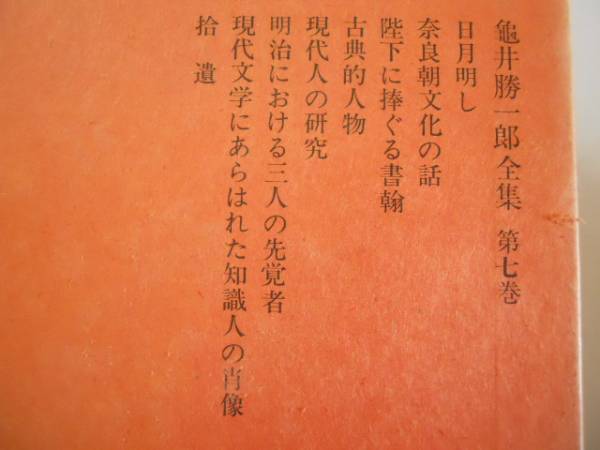 龜井勝一郎全集 第七巻
日月明し
奈良朝文化の話
陛下に捧ぐる書翰
古典的人物
現代人の研究
明治における三人の先覚者
現代文学にあらはれた知識人の肖像
拾遺